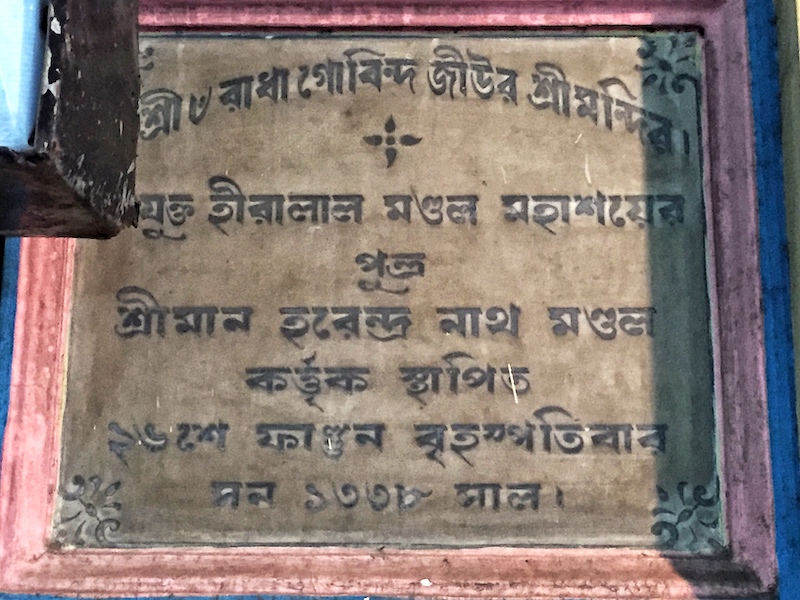 শ্রী ৺ রাধা গোবিন্দ জীউর শ্রীমন্দির।
যুক্ত হীরালাল মণ্ডল মহাশয়ের
পুত্র
শ্রীমান হরেন্দ্র নাথ মণ্ডল
কর্ত্তৃক স্থাপিত
২৬শে ফাল্গুন বৃহস্পতিবার
সন ১৩৩৮ সাল।